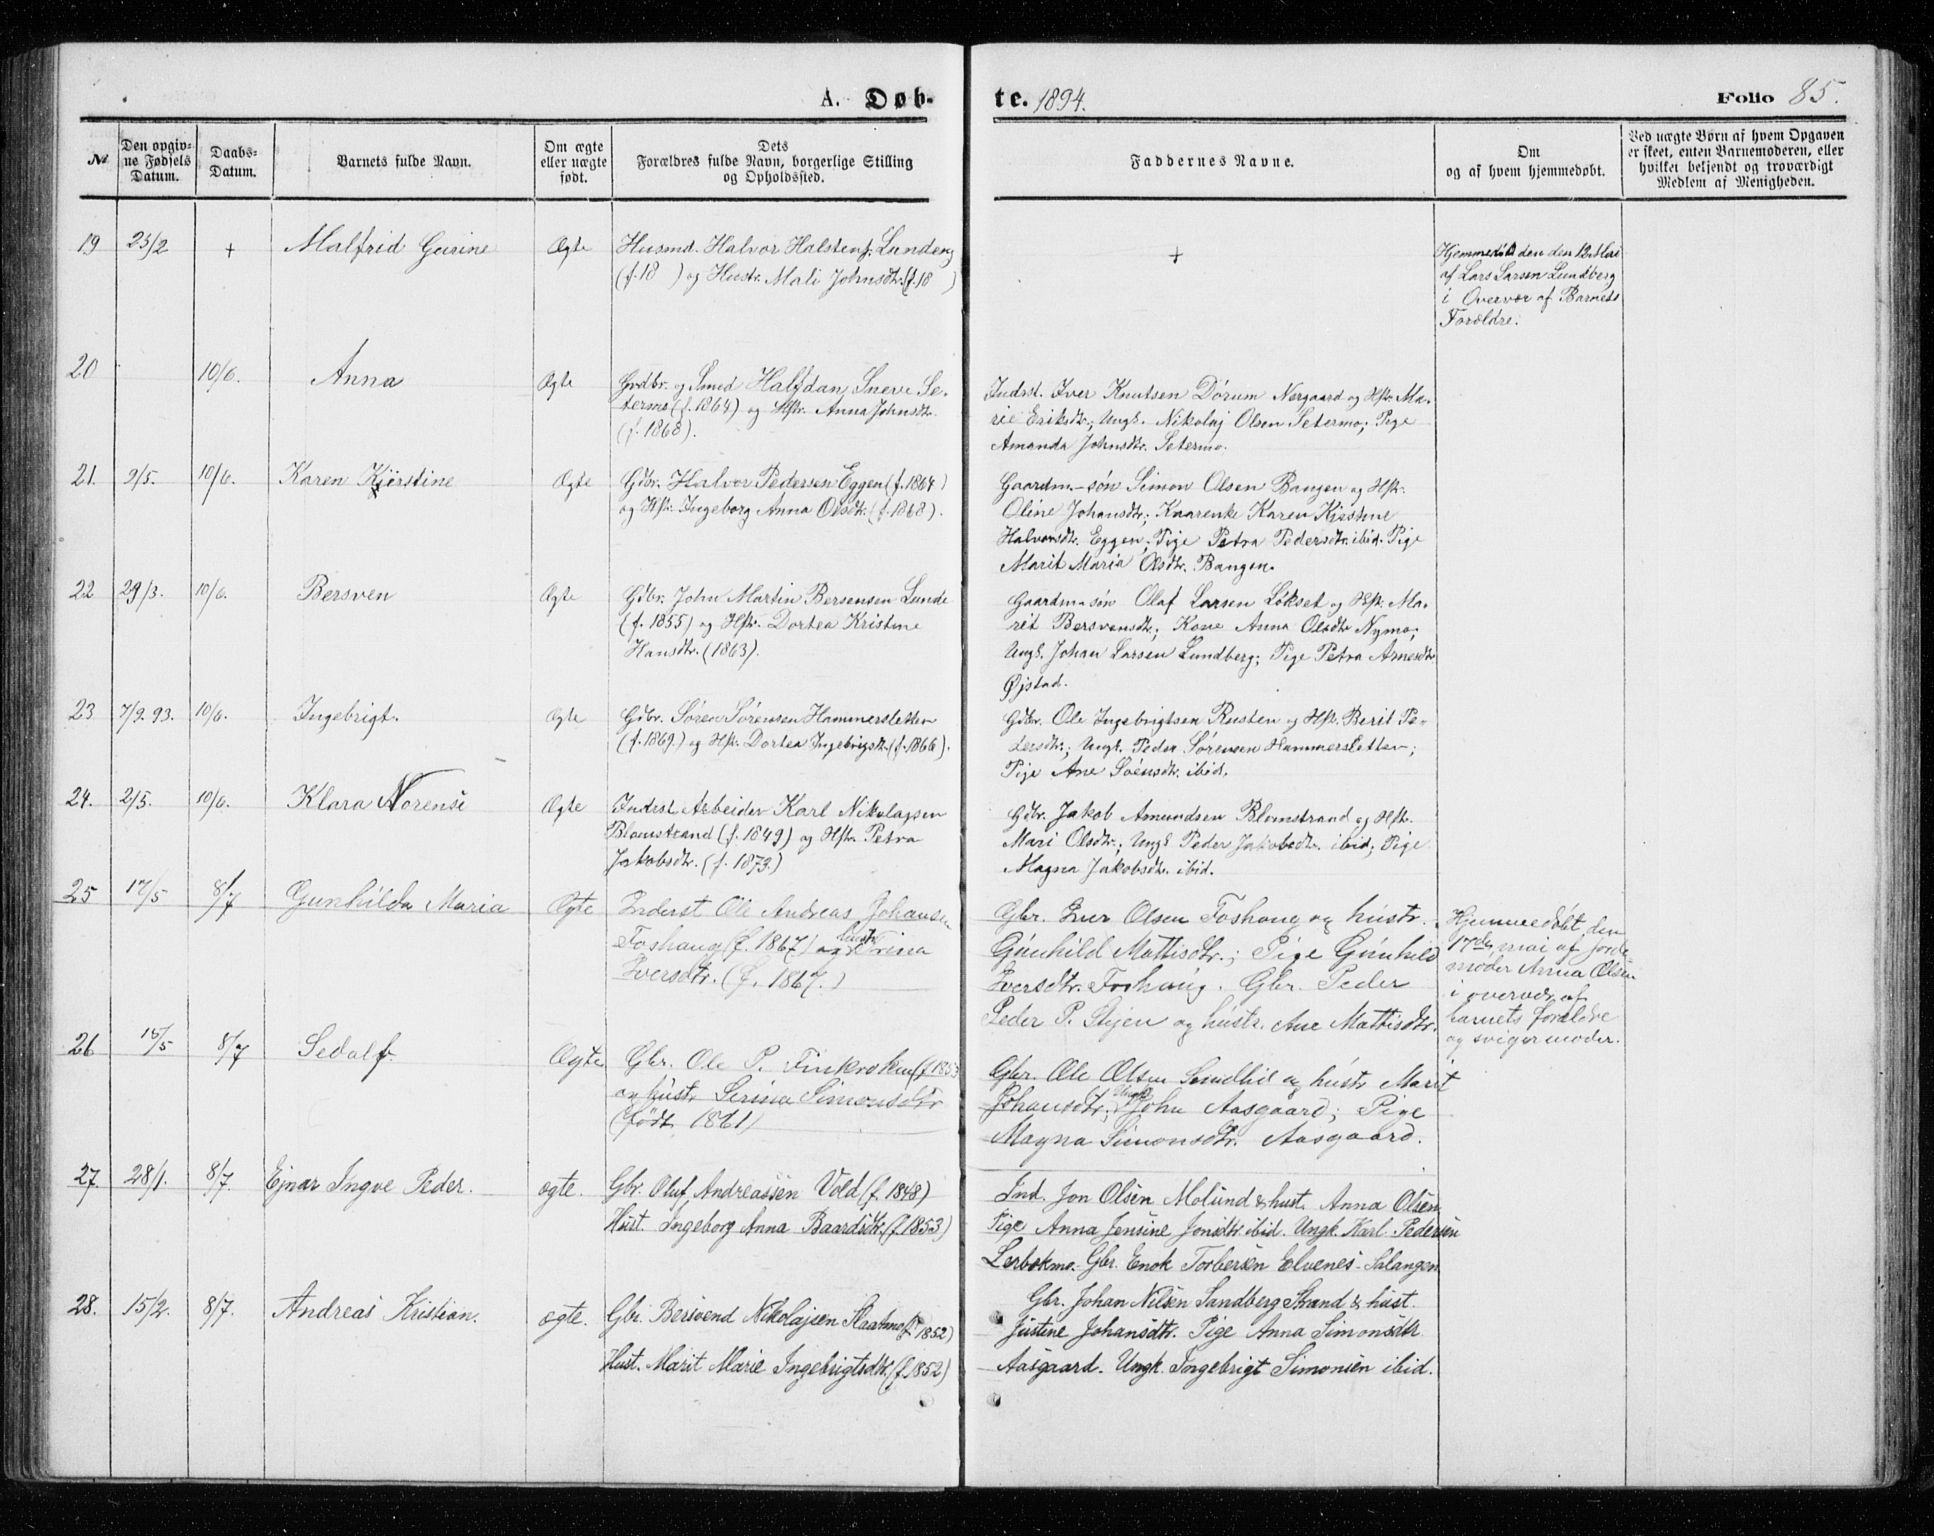 A. Døb-
te. 1894.
Folio 85.
№
Den opgiv-
ne Fødsels
Datum.
Daabs-
Datum.
Barnets fulde Navn.
Om ægte
eller uægte
født.
Dets
Forældres fulde Navn, borgerlige Stilling
og Opholdssted.
Faddernes Navne.
Om
og af hvem hjemmedøbt.
Ved uægte Børn af hvem Opgaven
er skeet, enten Barnemoderen, eller
hvilket bekjendt og troværdigt
Medlem af Menigheden.
19 + Malfrid Gurine Ægte
Husmd. Halvor Halstens. Lundberg
(f. 18 ) og Hustr. Mali Johnsdtr. (f. 18 )
+
Hjemmedøbt den 12 Mai
af Lars Larsen Lundberg
i Overvær af Barnets
Forældre.
20 10/6. Anna Ægte
Grdbr. og Smed Halfdan Sneve Se-
termo (f. 1864) og Hstr. Anna Johnsdtr.
(f. 1868).
Indrst. Iver Knutsen Dørum Norgaard og Hstr. Ma-
rie Eriksdtr.; Ungk. Nikolaj Olsen Setermo; Pige
Amanda Johnsdtr. Setermo.
21. 9/5. 10/6. Karen Kjerstine Ægte
Gdbr. Halvor Pedersen Eggen (f. 1864)
og Hstr. Ingeborg Anna Olsdtr. (f. 1868).
Gaardm-søn Simon Olsen Bangen og Hstr.
Oline Johansdtr.; Kaarenke Karen Kirstine
Halvorsdtr. Eggen; Pige Petra Pedersdtr. ibid. Pige
Marit Maria Olsdtr. Bangen.
22 29/3. 10/6. Bersven Ægte
Gdbr. John Martin Bersensen Lunde
(f. 1855) og Hstr. Dortea Kristine
Hansdtr. (1863).
Gaardm-søn Olaf Larsen Løkset og Hstr. Ma-
rit Bersvensdtr.; Kone Anna Olsdtr Nymo;
Ungk. Johan Larsen Lundberg; Pige Petra Arnesdtr
Øjstad.
23 7/9. 93. 10/6. Ingebrigt. Ægte
Gdbr. Søren Sørensen Hammersletten
(f. 1869.) og Hstr. Dortea Ingebrigtsdtr. (f. 1866).
Gdbr. Ole Ingebrigtsen Rusten og Hstr. Berit Pe-
dersdtr.; Ungk. Peder Sørensen Hammersletten;
Pige Ane Soënsdtr. ibid.
24. 2/5. 10/6. Klara Norensi Ægte
Indrst. Arbeider Karl Nikolajsen
Blomstrand (f. 1849) og Hstr. Petra
Jakobsdtr. (f. 1873.)
Gdbr. Jakob Amundsen Blomstrand og Hstr.
Mari Olsdtr.; Ungk Peder Jakobsdtr. ibid; Pige
Magna Jakobsdtr. ibid.
25 17/5 8/7 Gunhilda Maria Ægte
Inderst Ole Andreas Johansen
Foshaug (f. 1867) og hustr. Trina
Iversdtr. (f. 1867.)
Gbr. Iver Olsen Foshaug og hustr.
Gunhild Mattisdtr.; Pige Gunhild
Iversdtr. Foshaug. Gbr. Peder
Peder P. Stijen og hustr. Ane Mattisdtr.
Hjemmedøbt den
17de mai af Jorde-
moder Anna Olsen
i overvær af
barnets forældre
og svigermoder.
26 15/5 8/7 Sedolf Ægte
Gbr. Ole P. Finkroken (f 1853
og hustr Serina Simonsdtr
(født 1861)
Gbr. Ole Olsen Sandhil og hustr Marit
Johansdtr; Ungk John Aasgaard; Pige
Magna Simonsdtr. Aasgaard.
27. 28/1. 8/7. Ejnar Ingve Peder. ægte.
Gbr. Oluf Andreassen Vold (f. 1848)
Hust. Ingeborg Anna Baardsdtr. (f. 1853)
Ind. Jon Olsen Molund & hust. Anna Olsen
Pige Anna Jensine Jonsdtr. ibid. Ungk. Karl Pedersen
Lerbekmo. Gbr. Enok Torbersen Elvenes- Salangen
28. 15/2. 8/7. Andreas Kristian. ægte.
Gbr. Bersvend Nikolajsen Flaatmo (f. 1852)
Hust. Marit Marie Ingebrigtsdtr. (f. 1852)
Gbr. Johan Nilsen Sandberg Strand & hust.
Justine Johansdtr. Pige Anna Simonsdtr
Aasgaard. Ungk. Ingebrigt Simonsen ibid.